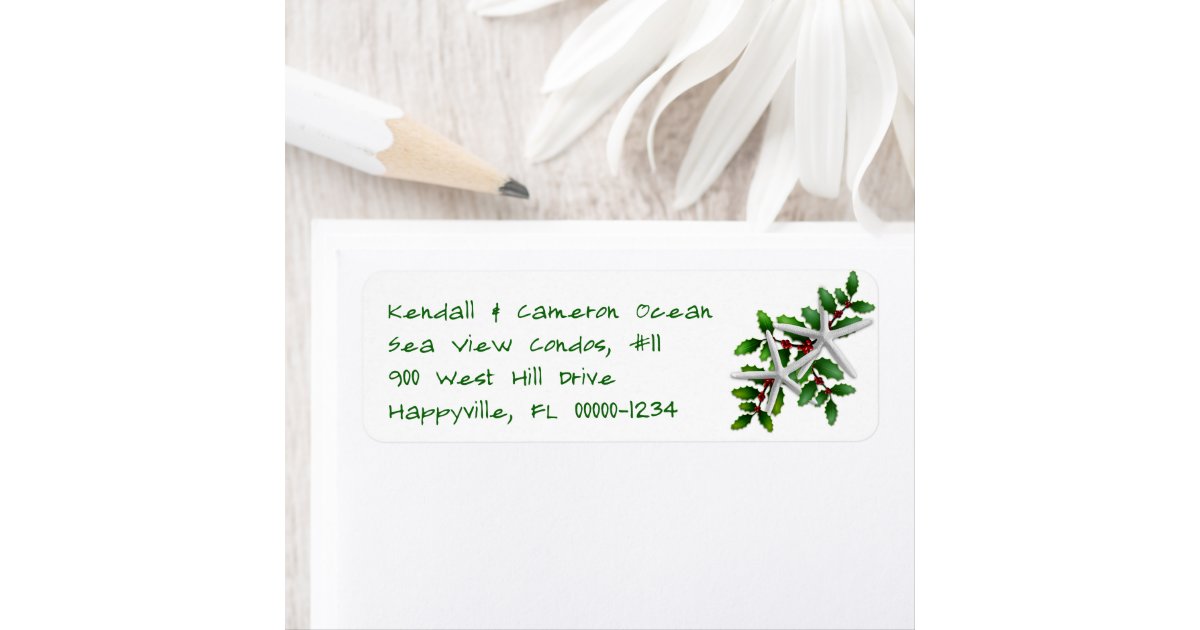 Kendall & Cameron Ocean
Sea View Condos, #11
900 West Hill Drive
Happyville, FL 00000-1234